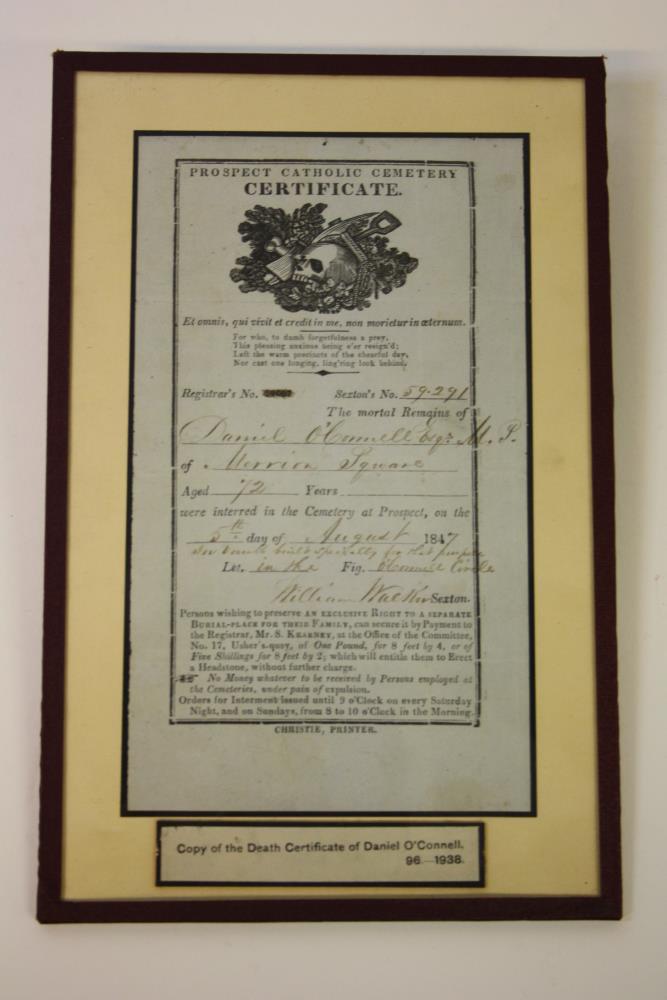 PROSPECT CATHOLIC CEMETERY
CERTIFICATE.
Et omnis, qui vivit et credit in me, non morietur in æternum.
For who, to dumb forgetfulness a prey,
This pleasing anxious being e'er resign'd;
Left the warm precincts of the chearful day,
Nor cast one longing, ling'ring look behind.
Registrar's No. Sexton's No. 59.291
The mortal Remains of
Daniel O'Connell Esqr. M.P.
of Merrion Square
Aged 72 Years
were interred in the Cemetery at Prospect, on the
5th day of August 1847
In vault built specially for that purpose
Let. in the Fig. O'Connell Circle
William Walker Sexton.
Persons wishing to preserve AN EXCLUSIVE RIGHT TO A SEPARATE
BURIAL-PLACE FOR THEIR FAMILY, can secure it by Payment to
the Registrar, MR. S. KEARNEY, at the Office of the Committee,
No. 17, Usher's-quay, of One Pound, for 8 feet by 4, or of
Five Shillings for 8 feet by 2; which will entitle them to Erect
a Headstone, without further charge.
No Money whatever to be received by Persons employed at
the Cemeteries, under pain of expulsion.
Orders for Interment issued until 9 o'Clock on every Saturday
Night, and on Sundays, from 8 to 10 o'Clock in the Morning.
CHRISTIE, PRINTER.
Copy of the Death Certificate of Daniel O'Connell.
96.—1938.